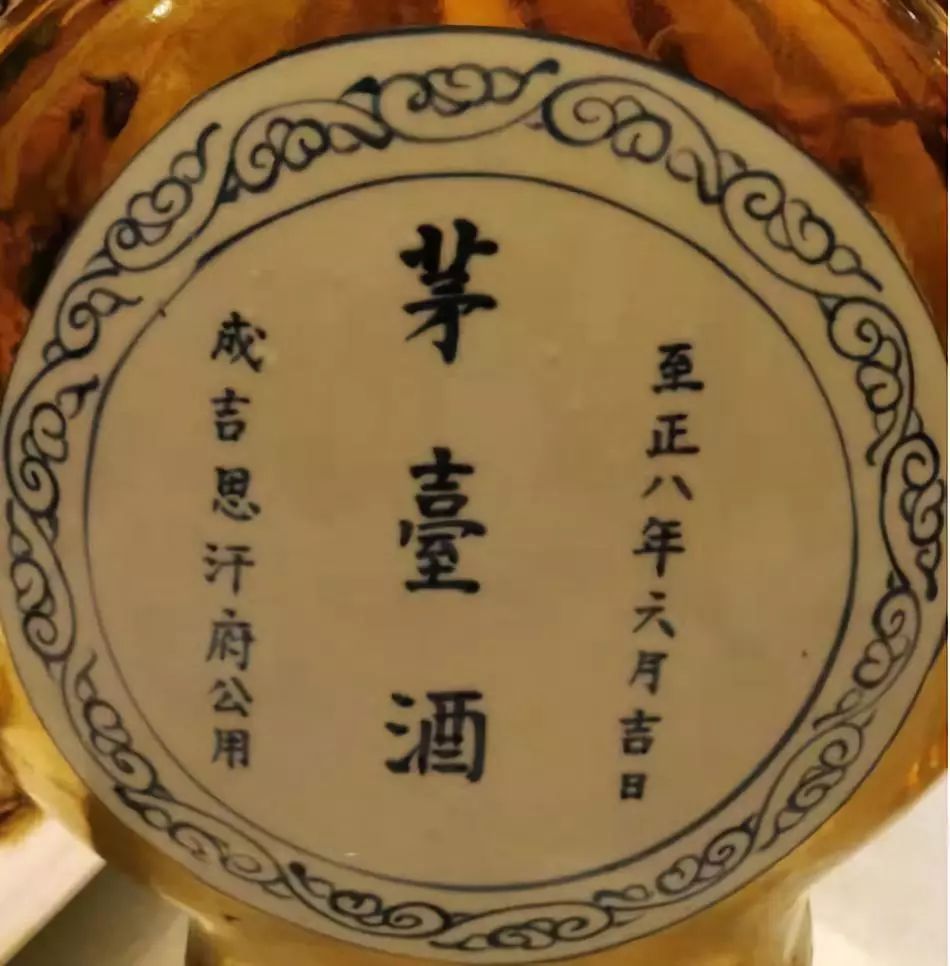 至正八年六月吉日
茅臺酒
成吉思汗府公用